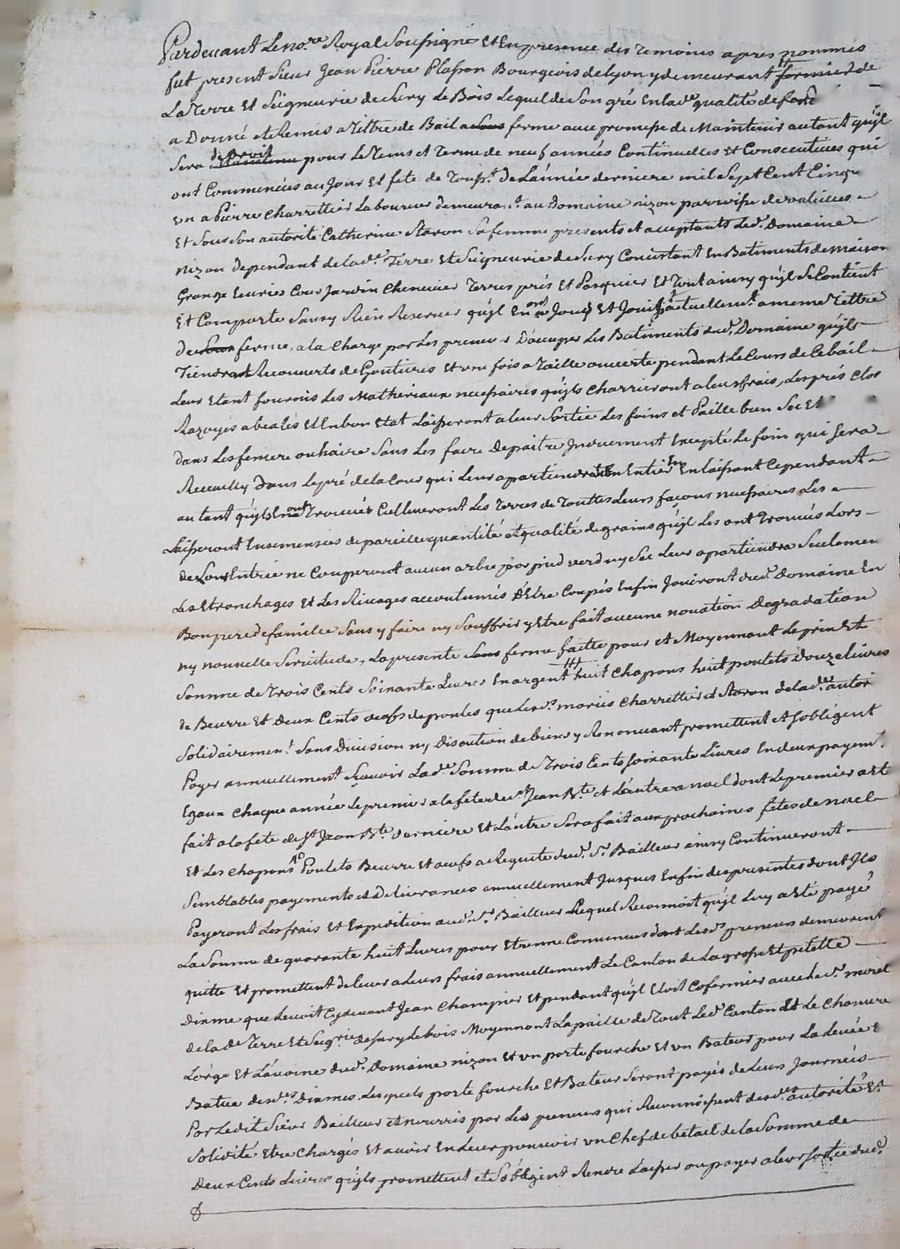 Pardevant Le no.re Royal Soussigné Et En presence des Temoins apres nommés
fut present Sieur Jean Pierre Plasson Bourgeois de Lyon y demeurant fermier de
La Terre Et Seigneurie de Sury Le Bois Lequel de Son gré En lad.e qualité de
a Donné et Remis a Tittre de Bail a ferme avec promesse de Maintenir autant qu'il
Sera de Droit pour Le Tems et Terme de neuf années Continuelles et Consecutives qui
ont Commencées au Jour Et fete de Touss.t De L'année derniere mil Sept Cent Cinq.te
un a Pierre Charrettier Laboureur demeura.t au Domaine nizon paroisse de valeilles
Et Sous Son autorité Catherine Staron Sa femme presents et acceptants Led.t Domaine
nizon dependant de lad.e Terre Et Seigneurie de Sury Consistant En Batiments de maison
Grange Ecuries Cour Jardin Chenevier Terres prés Et Pasquier Et Tout ainsy qu'il Se Contient
Et Comporte Sans y Rien Reserver qu'ils En ont Jouy Et Jouissent actuellem.t a meme Tittre
de ferme, a la Charge par Les preneurs D'occuper Les Batiments dud.t Domaine qu'ils
Tiendront Recouverts de Goutieres Et une fois a Taille ouverte pendant Le Cours de Ce bail
Leur Etant fournis Les Matheriaux necessaires qu'ils Charrieront a leurs frais, Les prés Clos
Razoyés abealés Et En bon Etat Laisseront a leur Sortie Les foins et Paille bien Sec Et
dans Les feniere ou haire Sans Les faire depaitre Jnverement Excepté Le foin qui Sera
Recueilly Dans Le pré de La Cour qui Leur apartiendra En Entier En laissant Cependant
autant qu'ils En ont Trouvés Cultiveront Les Terres de Touttes Leurs façons necessaires Les
Laisseront Ensemencés de pareille quantité et qualité de grains qu'ils Les ont Trouvés Lors
de Leur Entrée ne Couperont aucun arbre par pied verd ny Sec Leur apartiendra Seulement
Les Etronchages Et Les Rivages accoutumés D'Etre Coupés Enfin Joüiront dud.t Domaine En
Bon pere de famille Sans y faire ny Souffrir y Etre fait aucune novation Degradation
ny nouvelle Servitude, La presente ferme faitte pour et Moyennant Le prix Et
Somme de Trois Cents Soixante Livres En argent huit Chapons huit poulets Douze Livres
de Beurre Et Deux Cents oeufs de poules que Les d.s mariés Charrettier et Staron De lad.e autor.té
Solidairement Sans Division ny Discution de biens y Renonçant promettent Et S'obligent
Payer annuellement Scavoir Lad.e Somme de Trois Cents Soixante Livres En deux payem.ts
Egaux Chaque année Le premier a la fete de S.t Jean B.te et L'autre a noel dont Le premier a Eté
fait a la fete de S.t Jean B.te derniere Et L'autre Sera fait aux prochaines fetes de noel
Et Les Chapons Poulets Beurre Et oeufs a Requite dud.t S.r Bailleur ainsy Continueront
Semblables payements et Delivrances annuellement Jusques Enfin des presentes dont Jls
Payeront Les frais Et Expedition aud.t S.r Bailleur Lequel Reconnoit qu'ils Luy a Eté payé
La Somme de quarante huit Livres pour Etrenne Convenues dont Les d.s preneurs demeurent
quitte Et promettent de lever a Leurs frais annuellement Le Canton de La grosse Et petitte
Dixme que Levoit Cydevant Jean Champier Et pendant qu'il Etoit Cofermier avec le S.r morel
de la d.e Terre Et Seig.rie de Sury Le bois Moyennant La paille de Tout Led.t Canton Et Le Chanvre
L'orge Et L'avoine dud.t Domaine nizon Et un porte fourche Et un Bateur pour La Levée Et
Batue desd.es Dixmes Lesquels porte fourche Et Bateur Seront payés de Leurs Journées
Par Ledit Sieur Bailleur et nourris par Les preneurs qui Reconnoissent desd.es autorité Et
Solidité Etre Chargés Et avoir En Leur pouvoir un Chef de betail de la Somme de
Deux Cents Livres qu'ils promettent et S'obligent Rendre Laisser ou payer a leur Sortie dud.t